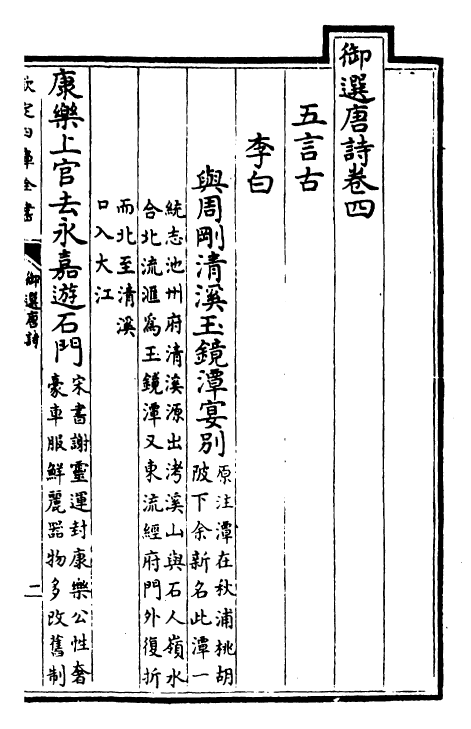 御選唐詩卷四
五言古
李白
與周剛清溪玉鏡潭宴別
原注潭在秋浦桃胡
陂下余新名此潭一
統志池州府清溪源出洘溪山與石人嶺水
合北流滙爲玉鏡潭又東流經府門外復折
而北至清溪
口入大江
康樂上官去永嘉遊石門
宋書謝靈運封康樂公性奢
豪車服鮮麗器物多改舊制
欽定四庫全書
御選唐詩